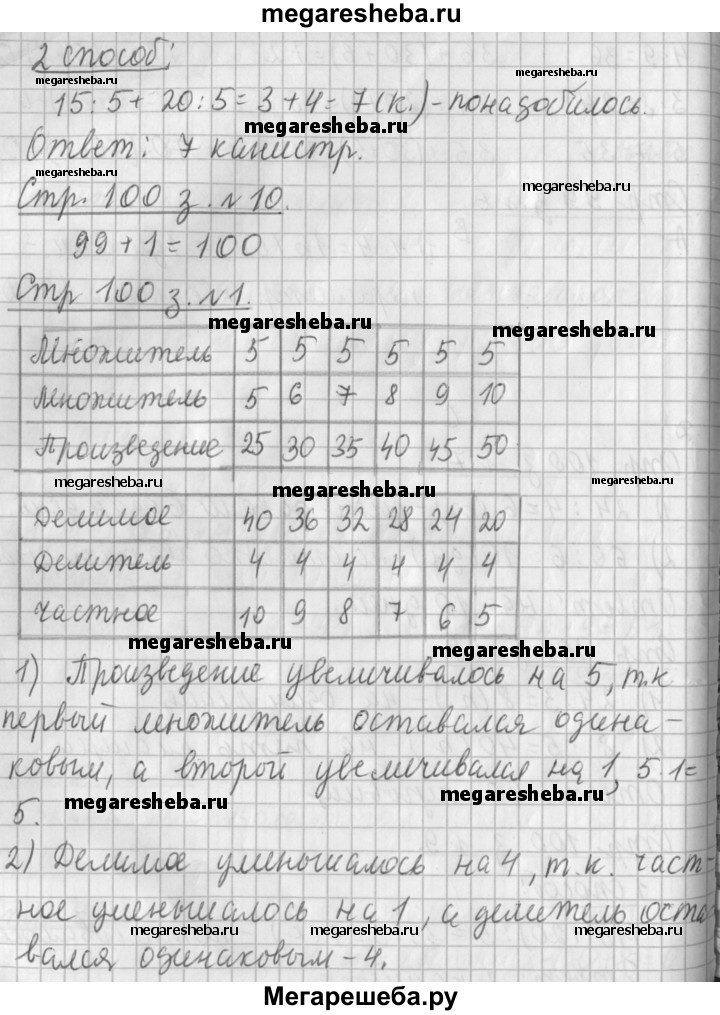 megaresheba.ru
2 способ:
megaresheba.ru
megaresheba.ru
15:5+20:5=3+4=7(к.)-понадобилось.
megaresheba.ru
Ответ: 7 канистр.
megaresheba.ru
megaresheba.ru
Стр. 100 з. №10.
99+1=100
Стр 100 з. №1.
megaresheba.ru
megaresheba.ru
Множитель 5 5 5 5 5 5
Множитель 5 6 7 8 9 10
Произведение 25 30 35 40 45 50
megaresheba.ru
megaresheba.ru
megaresheba.ru
Делимое 40 36 32 28 24 20
Делитель 4 4 4 4 4 4
Частное 10 9 8 7 6 5
megaresheba.ru
megaresheba.ru
1) Произведение увеличивалось на 5, т.к
первый множитель оставался одина-
ковым, а второй увеличивался на 1, 5·1=
megaresheba.ru
megaresheba.ru
5.
2) Делимое уменьшалось на 4, т.к. част-
ное уменьшалось на 1, а делитель оста
megaresheba.ru
megaresheba.ru
вался одинаковым-4.
Мегарешеба.ру